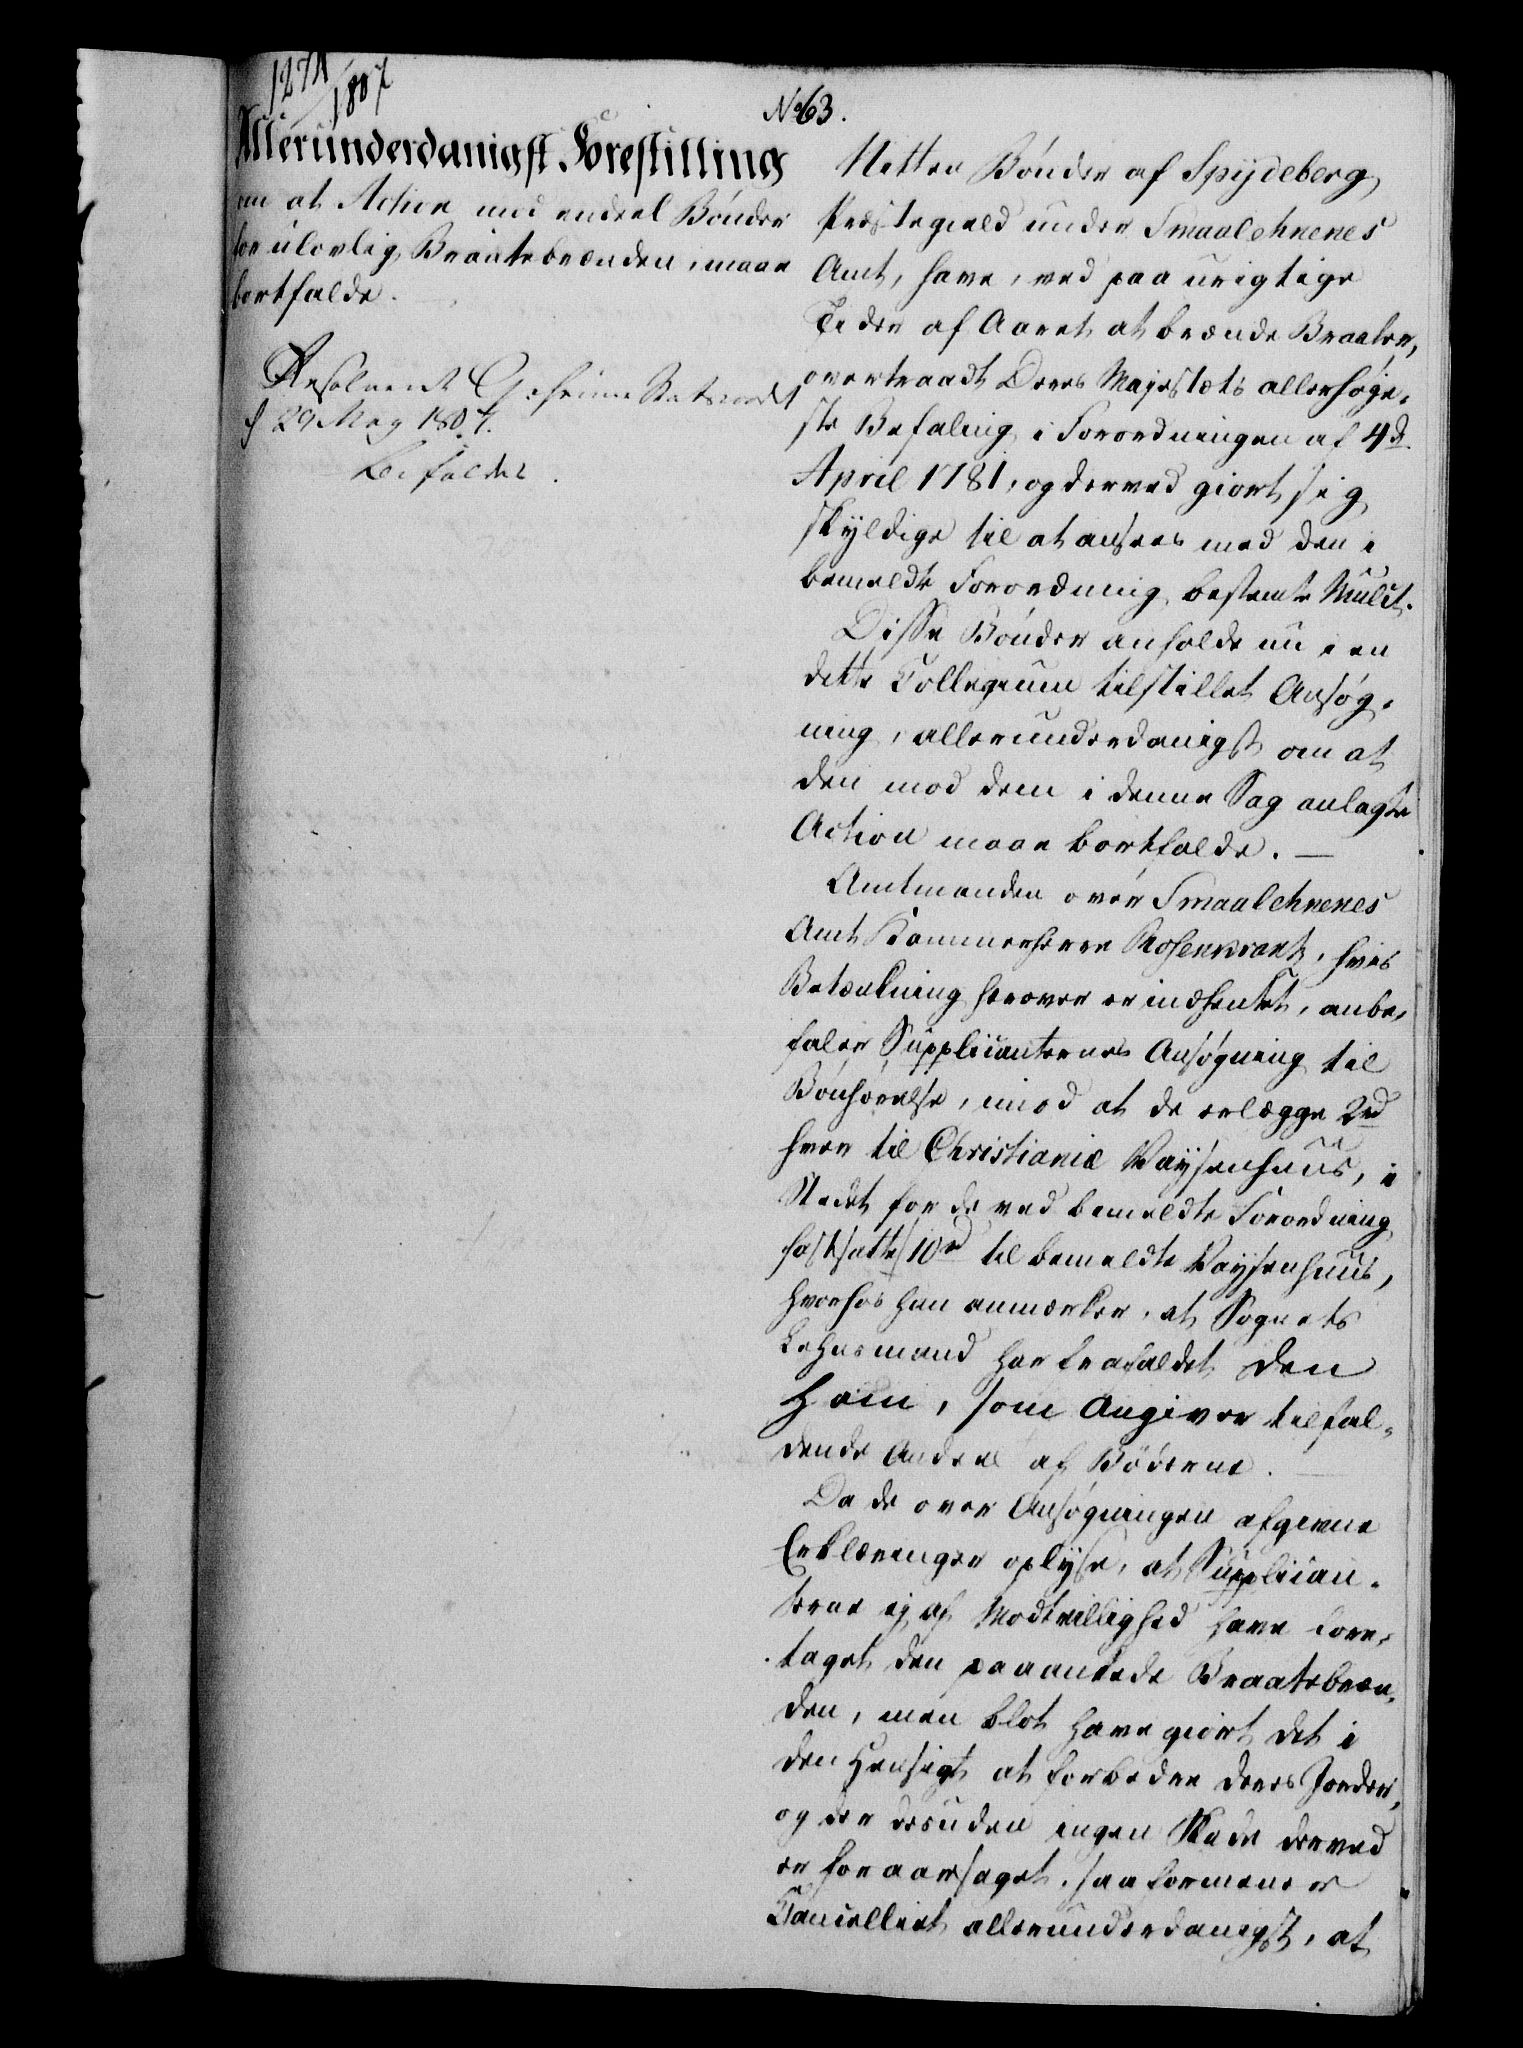 1274/1807
No 63.
Allerunderdanigst Forestilling
om at Action mod endeel Bønder
for ulovlig Braatebrænden, maae
bortfalde.
Resolveret Geheime Statsraadet
d 29 May 1807.
Bifaldes.
Netten Bønder af Spydeberg
Præstegield under Smaalehnenes
Amt, have, ved paa urigtige
Tider af Aaret at brænde Braater,
overtraadt Deres Majestæts allerhøie-
ste Befaling i Forordningen af 4de
April 1781, og derved giort sig
skyldige til at ansees med den i
bemeldte Forordning bestemte Mulct.
Disse Bønder anholde nu i en
dette Collegium tilstillet Ansøg-
ning, allerunderdanigst om at
den mod dem i denne Sag anlagte
Action maae bortfalde. —
Amtmanden over Smaalehnenes
Amt Kammerherre Rosenkrantz, hvis
Betænkning herover er indhentet, anbe-
faler Supplicanternes Ansøgning til
Bønhørelse, imod at de erlægge 2rd
hver til Christianiæ Vaysenhuus, i
Stedet for de ved bemeldte Forordning
fastsatte 10rd til bemeldte Vaysenhuus,
hvorhos han anmærker, at Sognets
Lehnsmand har frafaldet den
ham, som Angiver tilfal-
dende Andeel af Bøderne. —
Da de over Ansøgningen afgivne
Erklæringer oplyse, at Supplican-
terne ej af Modtvillighed have fore-
taget den paaankede Braatebræn-
den, men blot have giort det i
den Hensigt at forbedre deres Jorder,
og der desuden ingen Skade derved
er foraarsaget, saa formener
Cancelliet allerunderdanigst, at